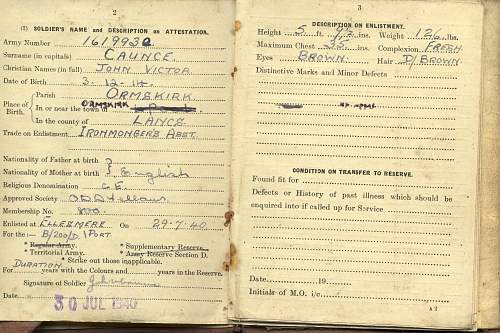 2
(I) SOLDIER'S NAME and DESCRIPTION on ATTESTATION.
Army Number 1619930
Surname (in capitals) CAUNCE.
Christian Names (in full) JOHN VICTOR.
Date of Birth 3. 12. 14.
Parish ORMSKIRK.
Place of Birth In or near the town of ORMSKIRK
In the county of LANCS.
Trade on Enlistment IRONMONGER'S ASST.
Nationality of Father at birth
Nationality of Mother at birth English
Religious Denomination C.E.
Approved Society Oddfellows
Membership No. 800.
Enlisted at ELLESMERE On 29.7.40
For the :— B/200/D PORT.
* Regular Army. * Supplementary Reserve.
* Territorial Army. * Army Reserve Section D.
* Strike out those inapplicable.
DURATION
For years with the Colours and years in the Reserve.
Signature of Soldier
Date 30 JUL 1940
3
DESCRIPTION ON ENLISTMENT.
Height 5 ft. ins. Weight 126 lbs.
Maximum Chest 35 ins. Complexion FRESH
Eyes BROWN. Hair D/BROWN
Distinctive Marks and Minor Defects
CONDITION ON TRANSFER TO RESERVE.
Found fit for
Defects or History of past illness which should be
enquired into if called up for Service
Date 19
Initials of M.O. i/c
A 2